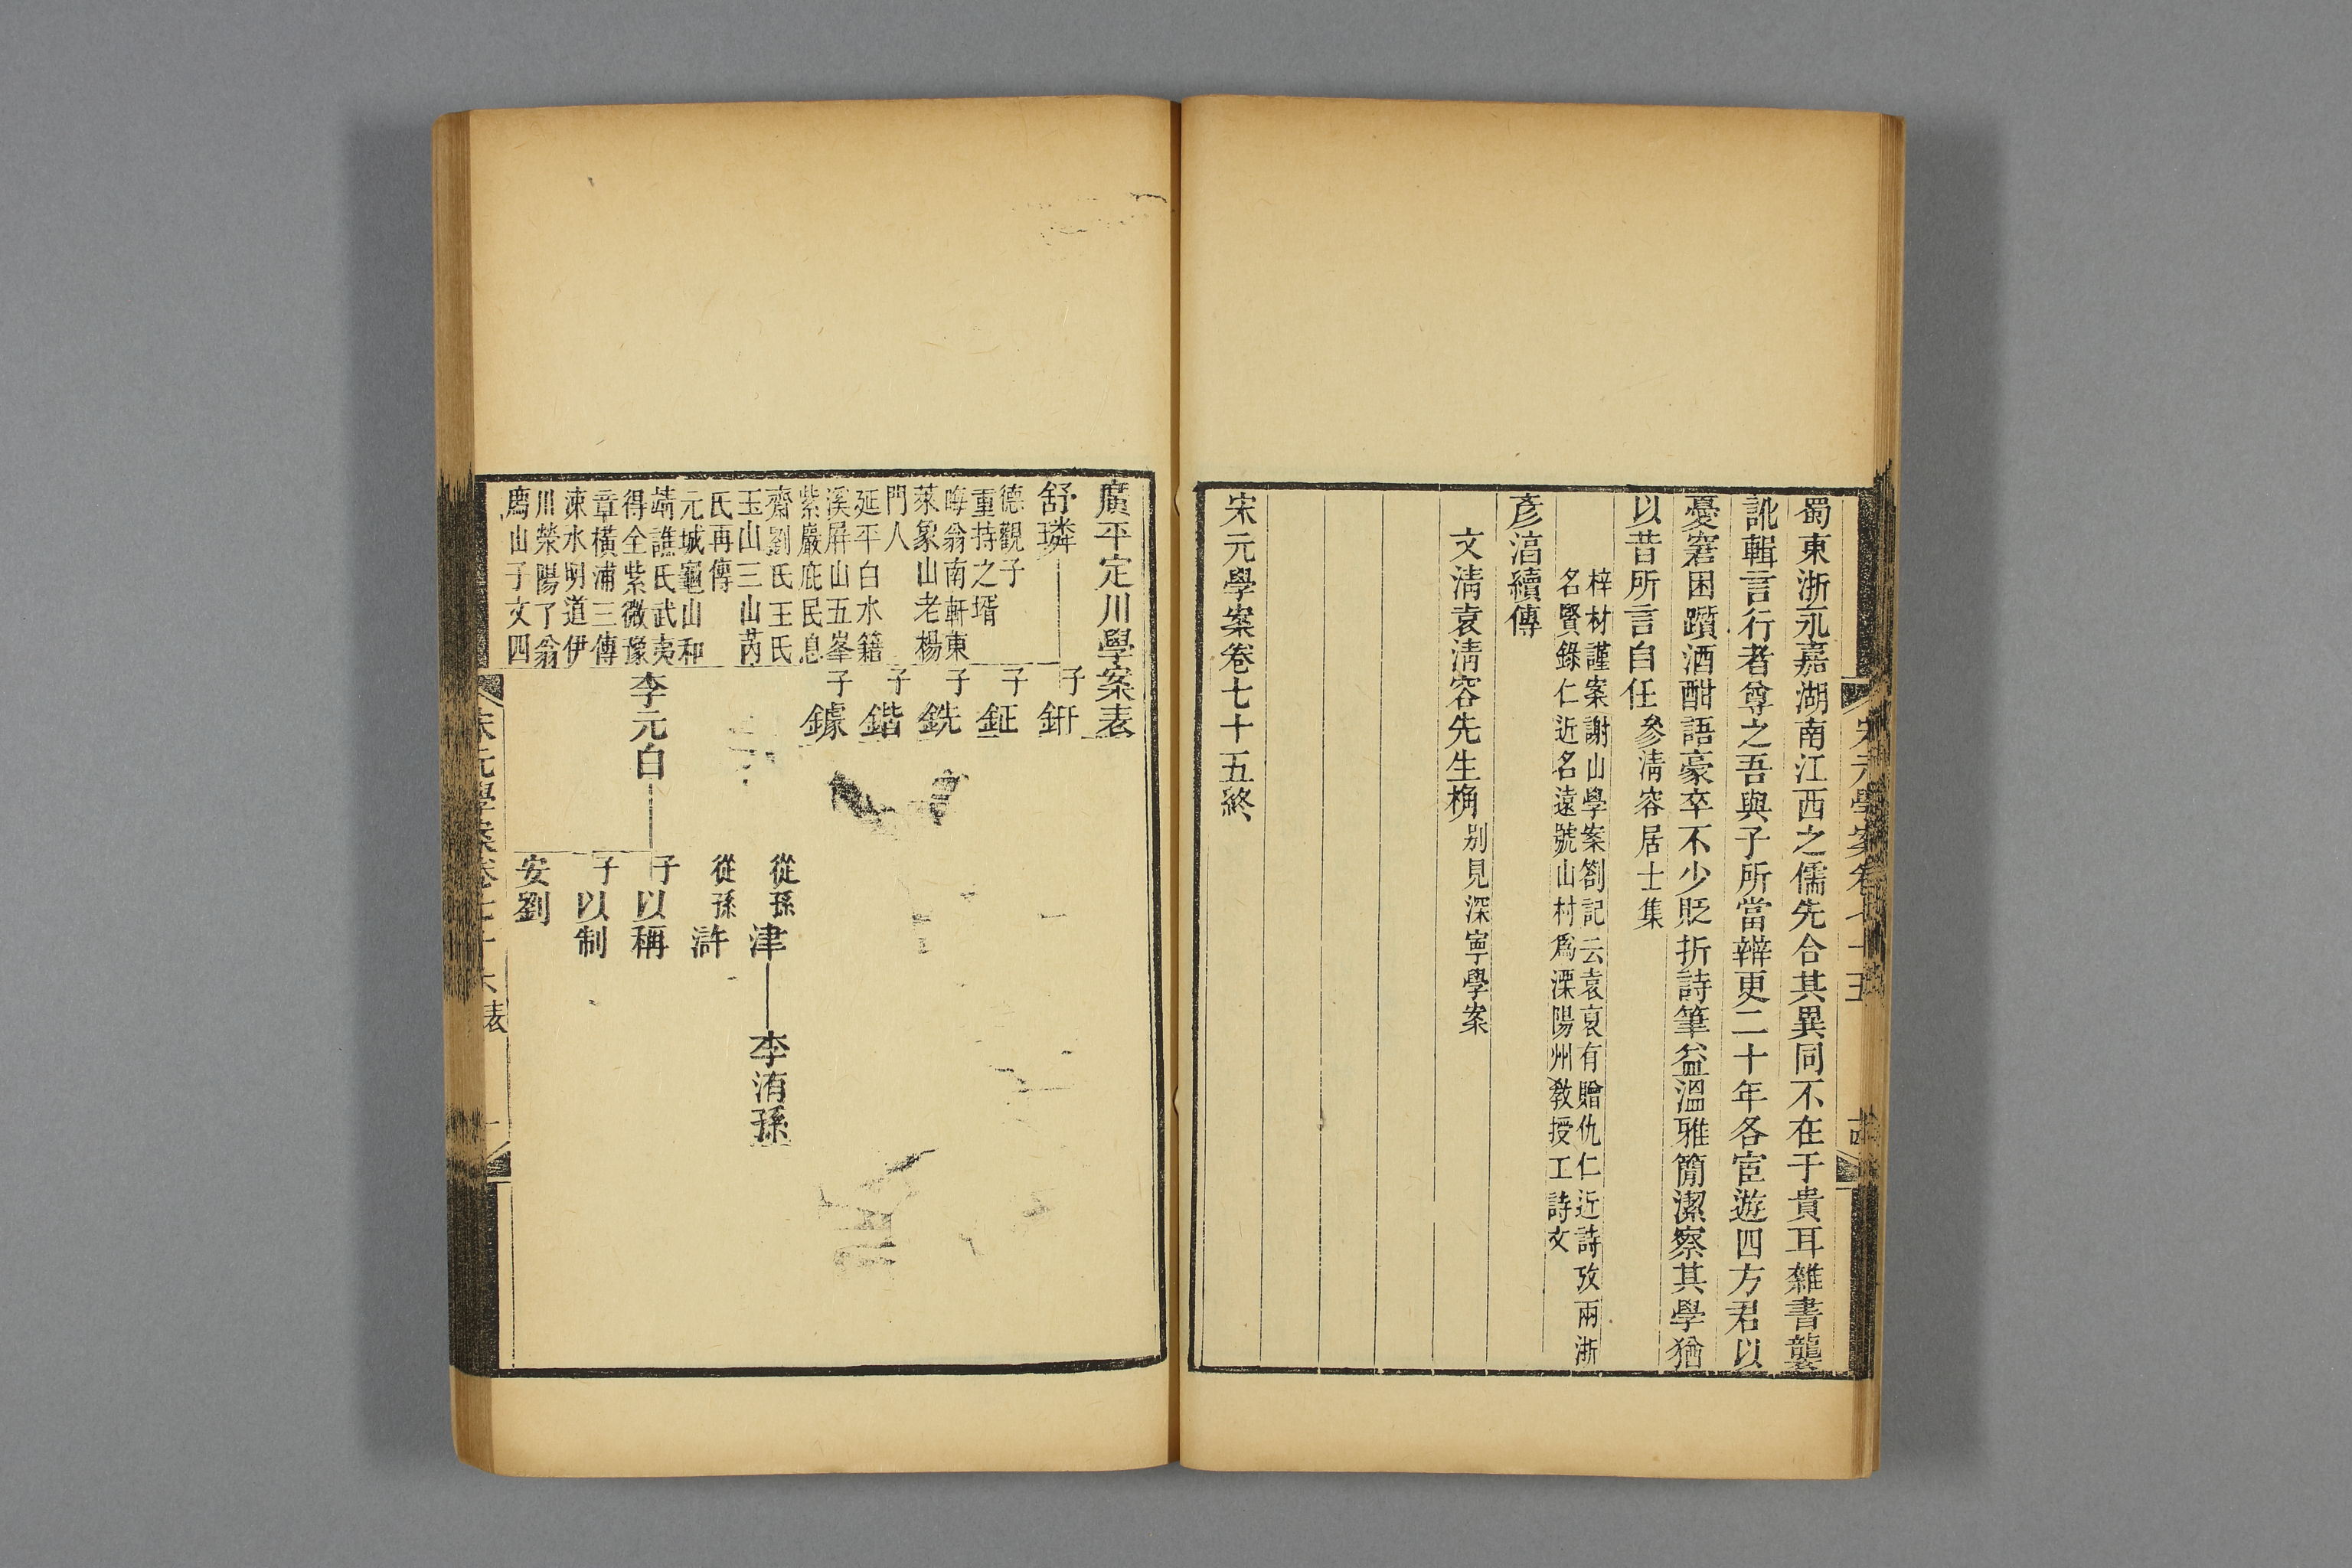 蜀東浙永嘉湖南江西之儒先合其異同不在于貴耳雜書龔
訛輯言行者尊之吾與子所當辧更二十年各宦遊四方君以
憂窘困躓酒酣語豪卒不少貶折詩筆益溫雅簡潔察其學猶
以昔所言自任參淸容居士集
梓材謹案謝山學案劄記云袁裒有贈仇仁近詩攷兩浙
名賢錄仁近名遠號山村爲溧陽州敎授工詩文
彥湻續傳
文淸袁淸容先生桷別見深寧學案
宋元學案卷七十五終
廣平定川學案表
舒璘
德觀子
童持之壻
晦翁南軒東
萊象山老楊
門人
延平白水籍
溪屏山五峯
紫巖庇民息
齋劉氏王氏
玉山三山芮
氏再傳
元城龜山和
靖譙氏武夷
得全紫微豫
章橫浦三傳
涑水明道伊
川滎陽了翁
廌山子文四
子銒
子鉦
子銑
子鍇
子鐻
李元白
從孫津
李洧孫
從孫滸
子以稱
子以制
安劉
宋元學案卷七十六表
一